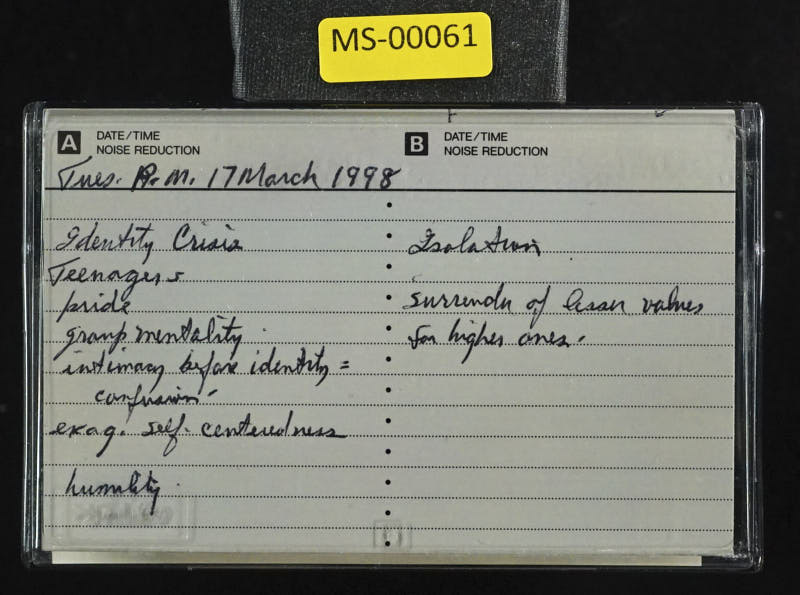 MS-00061
A DATE/TIME
NOISE REDUCTION
B DATE/TIME
NOISE REDUCTION
Tues. P.M. 17 March 1998
Identity Crisis
Teenagers
pride
group mentality
intimacy before identity =
confusion
exag. self-centeredness
humility
Isolation
surrender of lesser values
for higher ones.